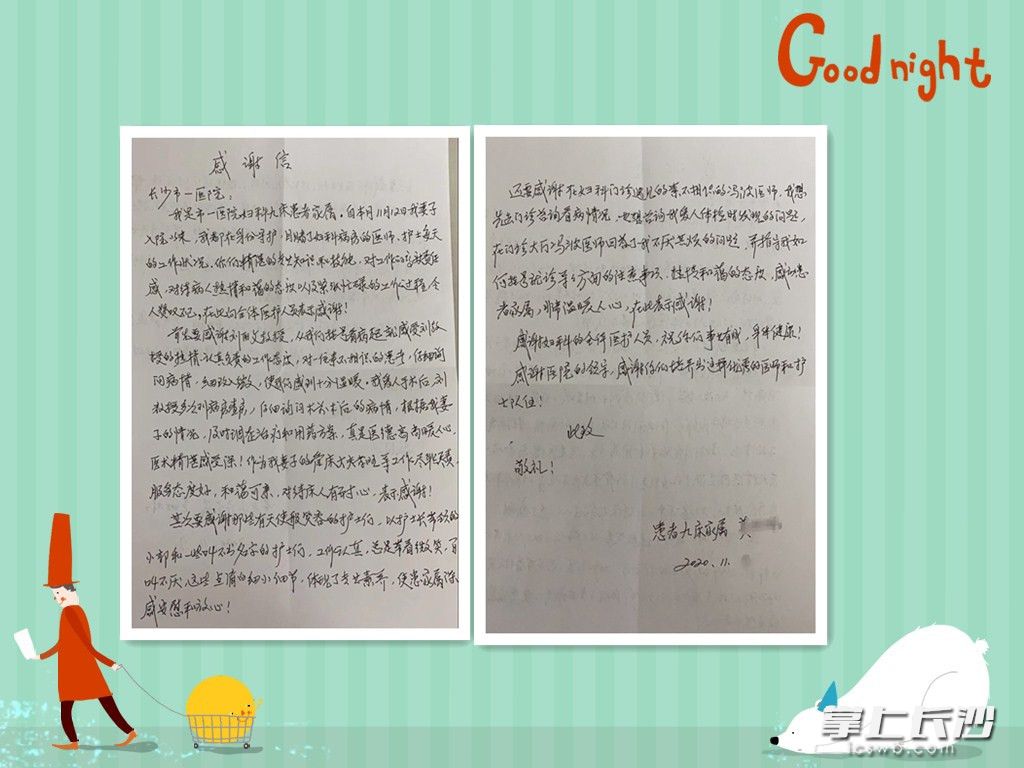 Good night
感谢信
长沙市一医院：
我是市一医院妇科九床患者家属，自本月11月12日我妻子
入院以来，我都在身份守护，目睹了妇科病房的医师、护士每天
的工作状况。你们精湛的专业知识和技能，对工作的高度责任
感，对待病人热情和蔼的态度以及紧张忙碌的工作过程，令
人赞叹不已，在此向全体医护人员表示感谢！
首先要感谢刘 教授，从我们挂号看病起就感受刘教
授的热情、认真负责的工作态度，对一位素不相识的患者，仔细询
问病情，细致入微，使我们感到十分温暖。我家人手术后刘
教授多次到病房查房，仔细询问术前术后的病情，根据我妻
子的情况，及时调整治疗和用药方案，真是医德高尚暖人心，
医术精湛感受深！作为我妻子的管床大夫 等工作尽职尽责，
服务态度好，和蔼可亲，对待病人有耐心，表示感谢！
其次要感谢那些有天使般笑容的护士们，以护士长 的
小郭和一些叫不出名字的护士们，工作认真，总是带着微笑，百
叫不厌，这些点滴的细小细节，体现了专业素养，使患者家属深
感安慰和放心！
还要感谢在妇科门诊遇见的素不相识的冯波医师，我想
先去门诊咨询看病情况，也想咨询我家人体检时发现的问题，
在门诊大厅冯波医师回答了我不厌其烦的问题，并指导我如
何挂号就诊等各方面的注意事项，热情和蔼的态度，感动患
者家属，非常温暖人心，在此表示感谢！
感谢妇科的全体医护人员，祝你们事业有成，身体健康！
感谢医院的领导，感谢你们培养出这样优秀的医师和护
士队伍！
此致
敬礼！
患者九床家属 黄
2020.11.
掌上长沙
icswb.com